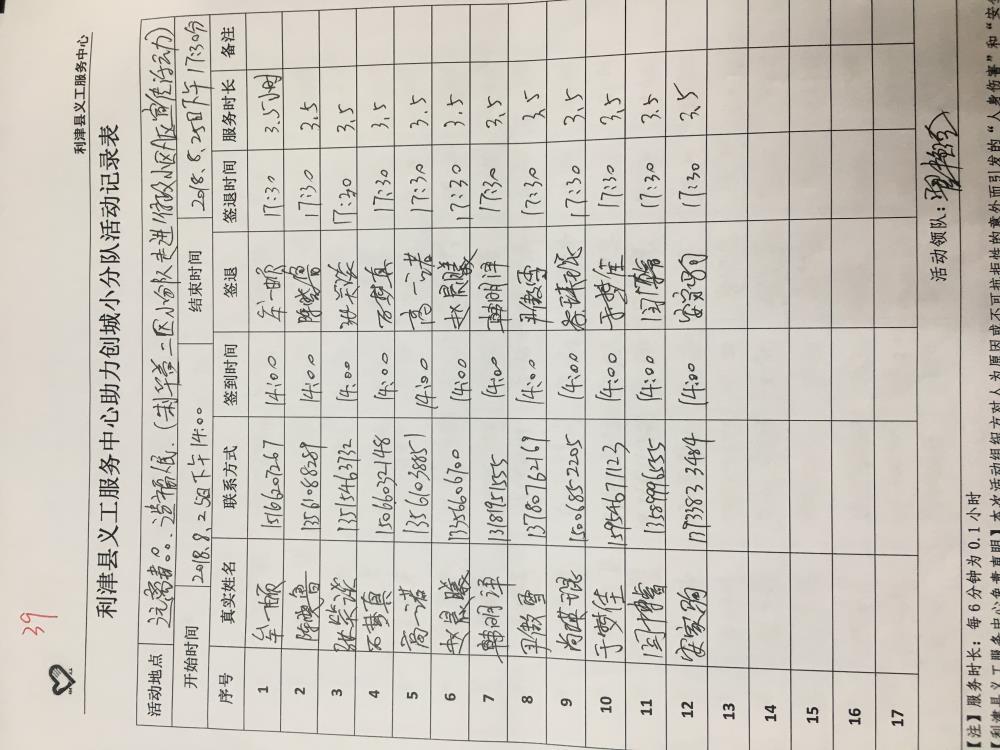 39
利津县义工服务中心
利津县义工服务中心助力创城小分队活动记录表
活动地点
开始时间 2018.8.25日下午14:00 结束时间 2018.8.25日下午17:30分
序号 真实姓名 联系方式 签到时间 签退 签退时间 服务时长 备注
1 牟一顺 15166207267 14:00 牟一顺 17:30 3.5小时
2 陈晓鲁 13561088289 14:00 陈晓鲁 17:30 3.5
3 13515463732 14:00 17:30 3.5
4 石梦真 15066032148 14:00 石梦真 17:30 3.5
5 高一诺 13561038851 14:00 高一诺 17:30 3.5
6 赵晨曦 13356606700 14:00 赵晨曦 17:30 3.5
7 韩明泽 13181951555 14:00 韩明泽 17:30 3.5
8 13780762169 14:00 17:30 3.5
9 15006852205 14:00 17:30 3.5
10 于梦佳 15954671123 14:00 于梦佳 17:30 3.5
11 13589996555 14:00 17:30 3.5
12 安家驹 17338333484 14:00 安家驹 17:30 3.5
13
14
15
16
17
【注】服务时长：每6分钟为0.1小时
活动领队：
【利津县义工服务中心免责声明】本次活动组织方对人为原因或不可抗拒性的意外而引发的“人身伤害”和“安全